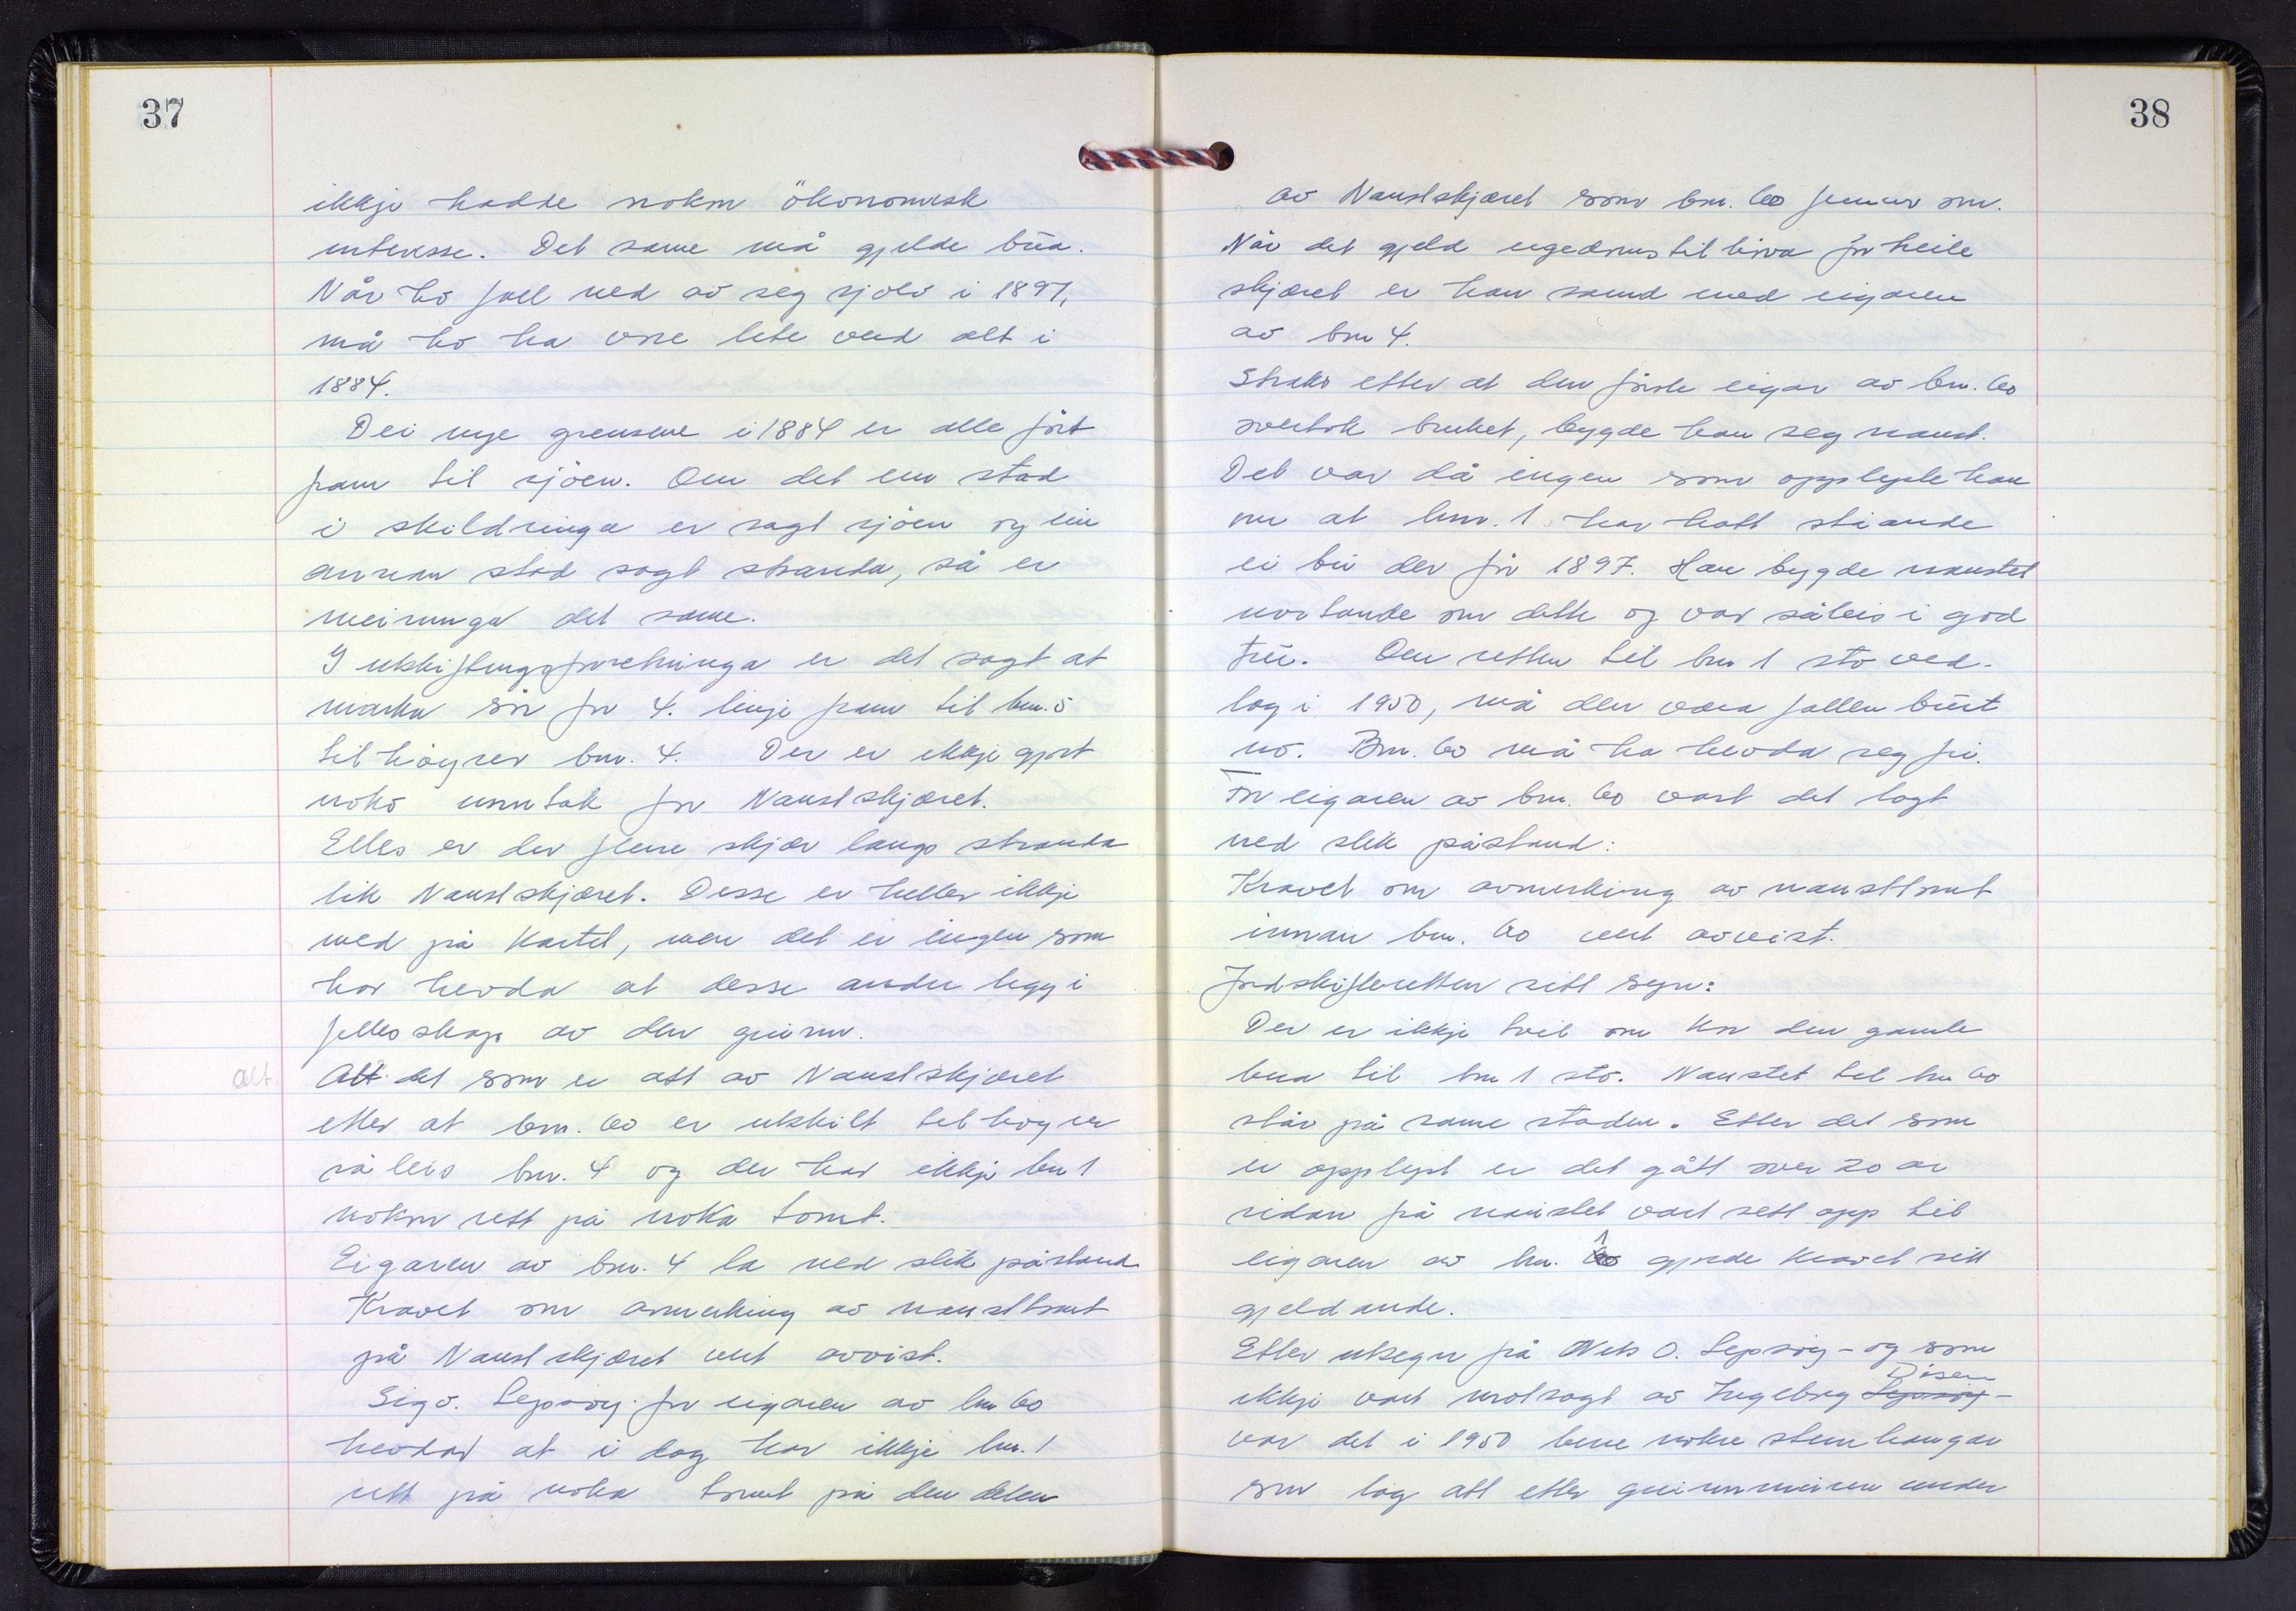 37
ikkje hadde nokon ökonomisk
interesse. Det same må gjelde bua.
Når ho fall ned av seg sjølv i 1897,
må ho ha vore lite verd alt i
1884.
Dei nye grensene i 1884 er alle ført
fram til sjöen. Om det ein stad
i skildringa er sagt sjöen og ein
annan stad sagt stranda, så er
meininga det same.
I utskiftingsforretninga er det sagt at
marka sør for 4. linje fram til bnr. 5
tilhöyrer bnr. 4. Der er ikkje gjort
noko unntak for Naustskjæret.
Elles er der fleire skjær langs stranda
lik Naustskjæret. Desse er heller ikkje
med på kartet, men det er ingen som
har hevda at desse andre ligg i
fellesskap av den grunn.
alt Alt det som er att av Naustskjæret
etter at bnr. 60 er utskilt tilhøyrer
såleis bnr. 4 og der har ikkje bnr 1
nokon rett på noka tomt.
Eigaren av bnr. 4 la ned slik påstand
Kravet om avmerking av nausttomt
på Naustskjæret vert avvist.
Sigv. Lepsøy for eigaren av bnr 60
hevdar at i dag har ikkje bnr. 1
rett på noka tomt på den delen
38
av Naustskjæret som bnr. 60 femner om.
Når det gjeld eigedomstilhøva for heile
skjæret er han samd med eigaren
av bnr 4.
Straks etter at den første eigar av bnr. 60
overtok bruket, bygde han seg naust.
Det var då ingen som opplyste han
om at bnr. 1 har hatt ståande
ei bu der før 1897. Han bygde naustet
uvitande om dette og var såleis i god
tru. Om retten til bnr 1 sto ved-
lag i 1950, må den vera fallen burt
no. Bnr. 60 må ha hevda seg fri.
For eigaren av bnr. 60 vart det lagt
ned slik påstand:
Kravet om avmerking av nausttomt
innan bnr. 60 vert avvist.
Jordskifteretten sitt syn:
Der er ikkje tvil om kor den gamle
bua til bnr 1 sto. Naustet til bnr 60
står på same staden. Etter det som
er opplyst er det gått over 20 år
sidan frå naustet vart sett opp til
eigaren av bnr. 1 gjorde kravet sitt
gjeldande.
Etter utsegn frå Nils O. Lepsøy - og som
ikkje vart motsagt av Ingeborg Lepsøy Døsen -
var det i 1950 berre nokre steinhaugar
som låg att etter grunnmuren under